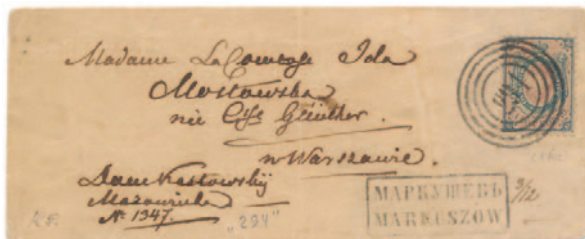 Madame La Comtesse Ida
Mostowska
née Ctsse Günther.
w Warszawie.
Dom Kostowskij
Mazowiecka
№ 1347.
"294"
МАРКУШЕВЪ
MARKUSZÓW
3/12